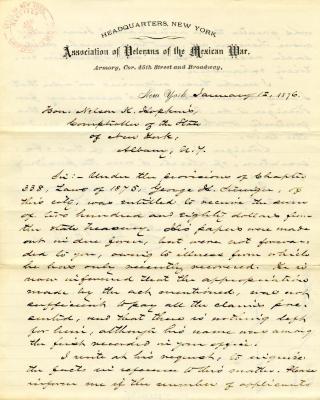 HEADQUARTERS, NEW YORK
Association of Veterans of the Mexican War.
Armory, Cor. 45th Street and Broadway,
New York January 12, 1876.
Hon. Nelson K. Hopkins,
Comptroller of the State
of New York,
Albany, N.Y.
Sir:- Under the provisions of Chapter
338, Laws of 1875, George H. of
this city, was entitled to receive the sum
of two hundred and eighty dollars from
the State Treasury. His papers were made
out in due form, but were not forwar-
ded to you, owing to illness from which
he has only recently recovered. He is
now informed that the appropriation
made by the act mentioned, was not
sufficient to pay all the claims pre-
sented, and that there is nothing left
for him, although his name was among
the first recorded in your office.
I write at his request, to inquire
the facts in reference to this matter. Please
inform me if the number of applicants